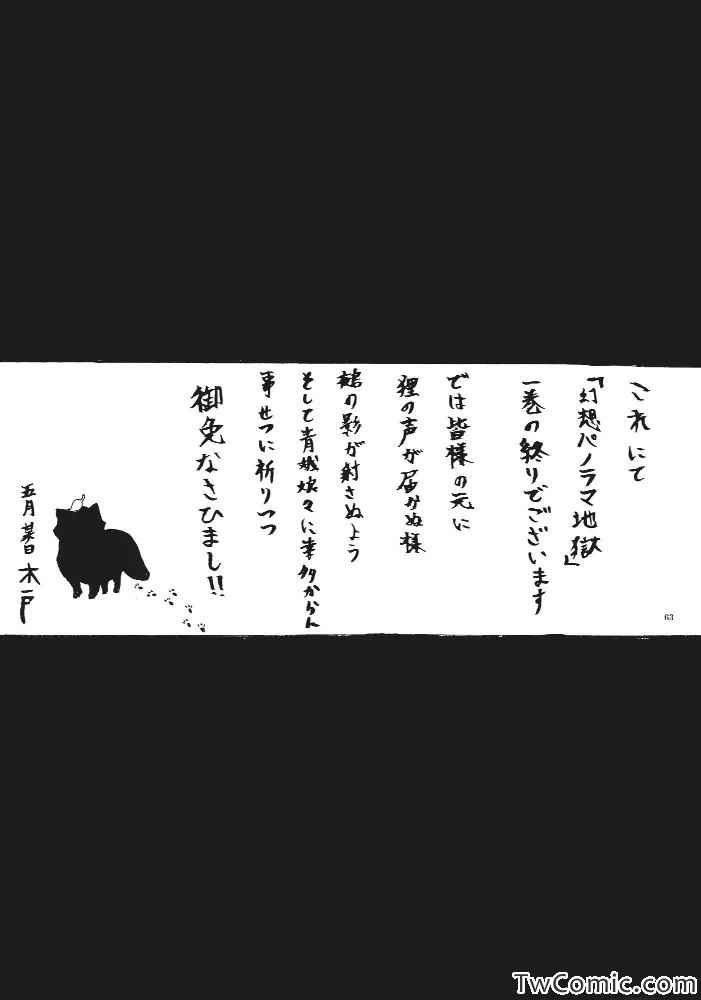 これにて
「幻想パノラマ地獄」
一巻の終りでございます
では皆様の元に
狸の声が届かぬ様
鵺の影が射さぬよう
そして青娥娘々に幸多からん
事せつに祈りつつ
御免なさひまし!!
五月 木戸
63
TwComic.com